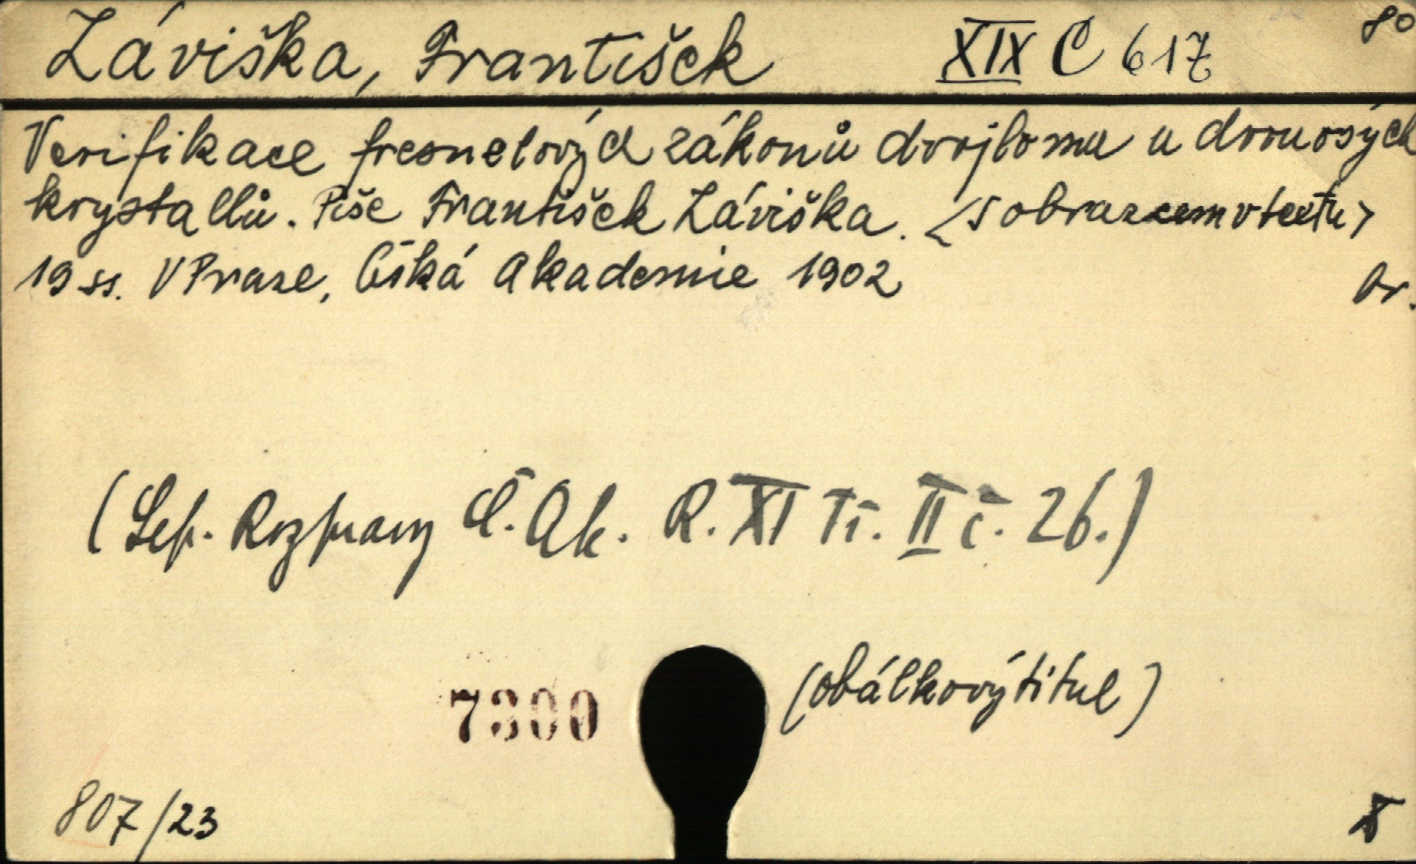 Záviška, František XIX C 617 80
Verifikace fresnelových zákonů dvojlomu u dvouosých
krystallů. Píše František Záviška. <s obrazcem v textu>
19 ss. V Praze, Česká Akademie 1902 br.
(Sep. Rozpravy Č. Ak. R. XI Tř. II č. 26.)
(obálkový titul)
7300
807/23